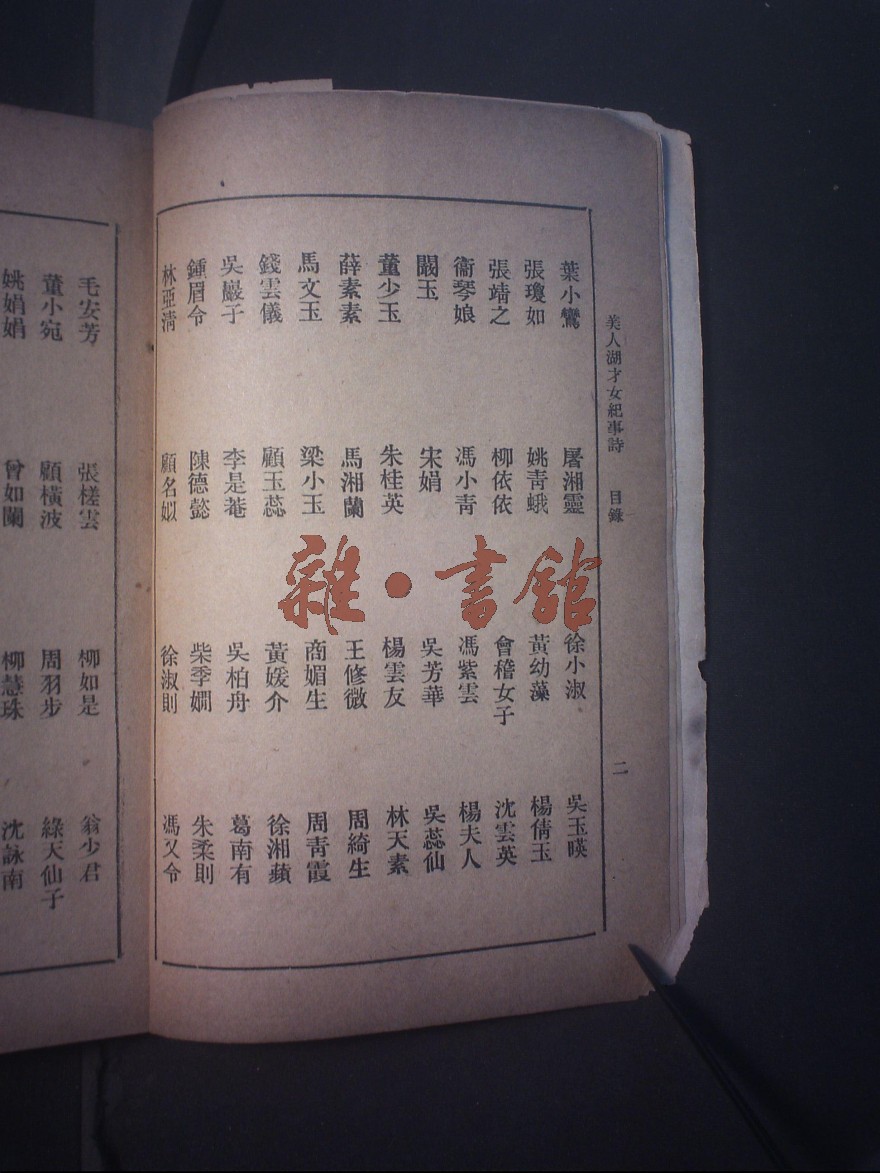 美人湖才女紀事詩 目錄 二
葉小鸞 屠湘靈 徐小淑 吳玉暎
張瓊如 姚靑蛾 黃幼藻 楊倩玉
張靖之 柳依依 會稽女子 沈雲英
衞琴娘 馮小靑 馮紫雲 楊夫人
闞玉 宋娟 吳芳華 吳蕊仙
董少玉 朱桂英 楊雲友 林天素
薛素素 馬湘蘭 王修微 周綺生
馬文玉 梁小玉 商媚生 周靑霞
錢雲儀 顧玉蕊 黃媛介 徐湘蘋
吳巖子 李是菴 吳柏舟 葛南有
鍾眉令 陳德懿 柴季嫻 朱柔則
林亞淸 顧名姒 徐淑則 馮又令
毛安芳 張槎雲 柳如是 翁少君
董小宛 顧橫波 周羽步 綠天仙子
姚娟娟 曾如蘭 柳慧珠 沈詠南
雜·書館